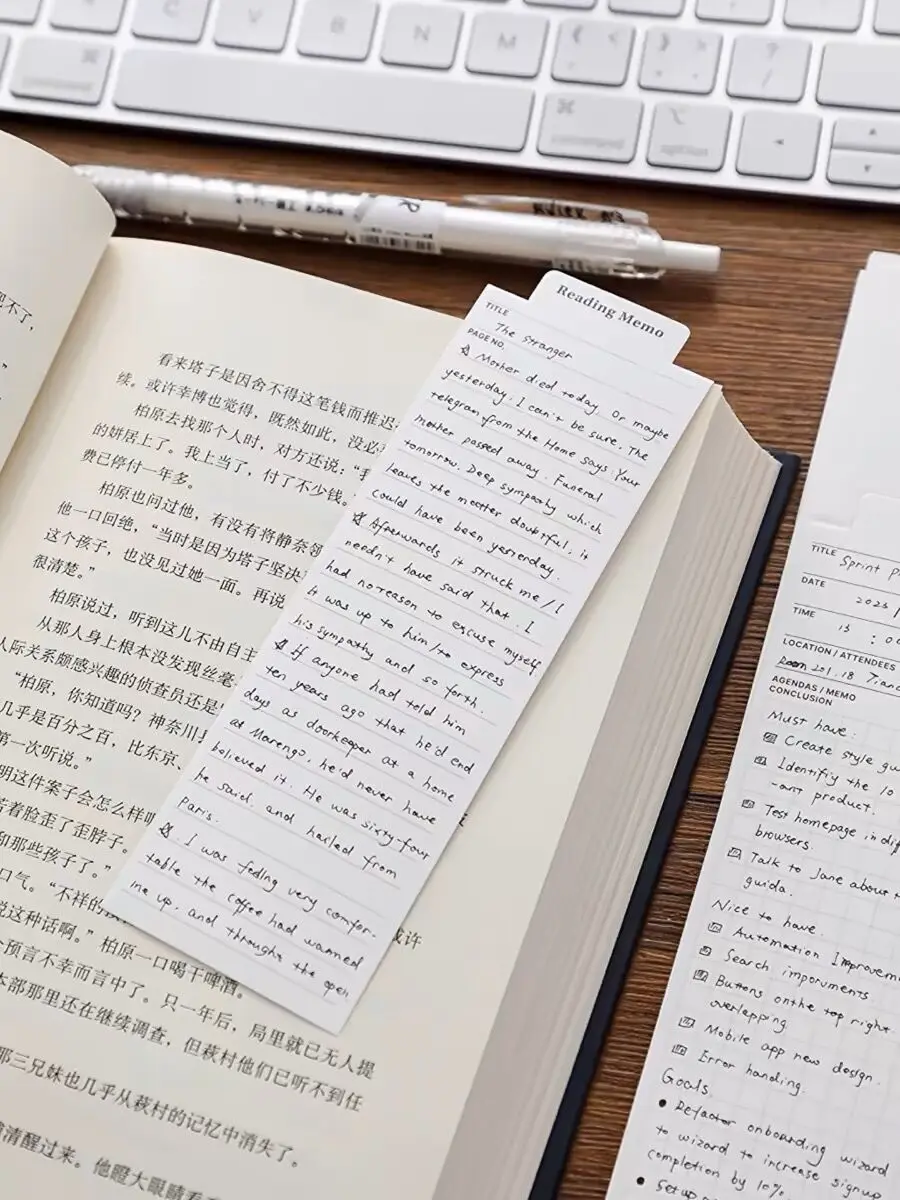 Z
X
C
V
B
N
M
<
>
?
/
⌘
command
⌘
command
⌥
option
Reading Memo
TITLE
The stranger
PAGE NO.
Mother died today. Or maybe
yesterday. I can't be sure. The
telegram from the Home says: Your
mother passed away. Funeral
tomorrow. Deep sympathy which
leaves the matter doubtful; it
could have been yesterday.
Afterwards it struck me / I
needn't have said that. I
had no reason to excuse myself
It was up to him / to express
his sympathy and so forth.
If anyone had told him
ten years ago that he'd end
days as doorkeeper at a home
at Marengo, he'd never have
believed it. He was sixty-four
he said. and hailed from
Paris.
I was feeling very comfor-
table the coffee had warmed
me up, and throught the open
看来塔子是因舍不得这笔钱而推迟
续。或许幸博也觉得，既然如此，没必
柏原去找那个人时，对方还说：“我
的姘居上了。我上当了，付了不少钱。
费已停付一年多。
柏原也问过他，有没有将静奈领
他一口回绝，“当时是因为塔子坚决
这个孩子，也没见过她一面。再说
很清楚。”
柏原说过，听到这儿不由自主
从那人身上根本没发现丝毫
人际关系颇感兴趣的侦查员还是
“柏原，你知道吗？神奈川县
几乎是百分之百，比东京、
第一次听说。”
明这件案子会怎么样
苦着脸歪了歪脖子。
和那些孩子了。”
口气。“不祥的
或许
说这种话啊。”柏原一口喝干啤酒。
预言不幸而言中了。只一年后，局里就已无人提
本部那里还在继续调查，但萩村他们已听不到任
那三兄妹也几乎从萩村的记忆中消失了。
清醒过来。他瞪大眼睛看
不了，
TITLE
Sprint p
DATE
2023 /
TIME
13 : 00
LOCATION / ATTENDEES
Room 201, 18
AGENDAS / MEMO
CONCLUSION
Must have:
Create style gu
Identifiy the 10
-ant product.
Test homepage in dif
browsers.
Talk to Jane about t
guida.
Nice to have.
Automation Improvem
Search imporuments.
Buttons onthe top right
overlapping.
Mobile app new design.
Error handing.
Goals.
Refactor onboarding wizard
to wizard to increase signup
completion by 10%
Setup